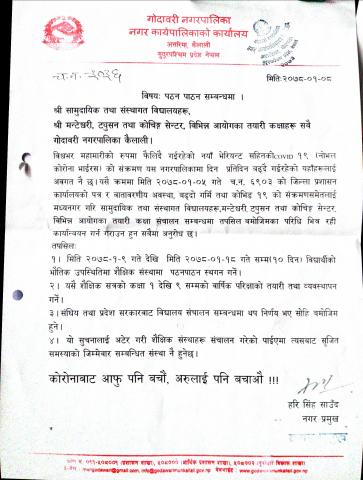 गोदावरी नगरपालिका
नगर कार्यपालिकाको कार्यालय
अत्तरिया, कैलाली
सुदूरपश्चिम प्रदेश नेपाल
च.नं.
मिति:२०७८-०१-०८
विषयः पठन पाठन सम्बन्धमा ।
श्री सामुदायिक तथा संस्थागत विद्यालयहरू,
श्री मन्टेश्वरी, टयुसन तथा कोचिङ्ग सेन्टर, विभिन्न आयोगका तयारी कक्षाहरू सबै
गोदावरी नगरपालिका कैलाली।
विश्वभर महामारीको रूपमा फैलिदै गईरहेको नयाँ भेरियन्ट सहितकोCOVID १९ (नोभल
कोरोना भाईरस) को संक्रमण यस नगरपालिकामा दिन प्रतिदिन बढ्दै गईरहेको यहाँहरूलाई
अवगत नै छ।यसै क्रममा मिति २०७८-०१-०५ गते च.न. ६९०३ को जिल्ला प्रशासन
कार्यालयको पत्र र वातावरणीय अवस्था, बढ्दो गर्मि तथा कोभिड १९ को संक्रमणसमेतलाई
मध्यनगर गरि सामुदायिक तथा संस्थागत विद्यालयहरू,मन्टेश्वरी,टयुसन तथा कोचिङ्ग सेन्टर,
विभिन्न आयोगका तयारी कक्षा संचालन सम्बन्धमा तपसिल वमोजिमका परिधि भित्र रही
कार्यान्वयन गर्न गराउन हुन सबैमा अनुरोध छ।
तपसिल:
१। मिति २०७८-१-९ गते देखि मिति २०७८-०१-१८ गते सम्म(१० दिन) विद्यार्थीको
भौतिक उपस्थितिमा शैक्षिक संस्थामा पठनपाठन स्थगन गर्ने।
२। यसै शैक्षिक सत्रको कक्षा १ देखि ९ सम्मको वार्षिक परिक्षाको तयारी तथा व्यवस्थापन
गर्ने।
३। संघिय तथा प्रदेश सरकारबाट विद्यालय संचालन सम्बन्धमा थप निर्णय भए सोहि वमोजिम
हुने।
४। यो सुचनालाई अटेर गरी शैक्षिक संस्थाहरू संचालन गरेको पाईएमा त्यसबाट सृजित
समस्याको जिम्मेवार सम्बन्धित संस्था नै हुनेछ।
कोरोनाबाट आफु पनि बचौं, अरुलाई पनि बचाऔ !!!
हरि सिंह साउँद
नगर प्रमुख